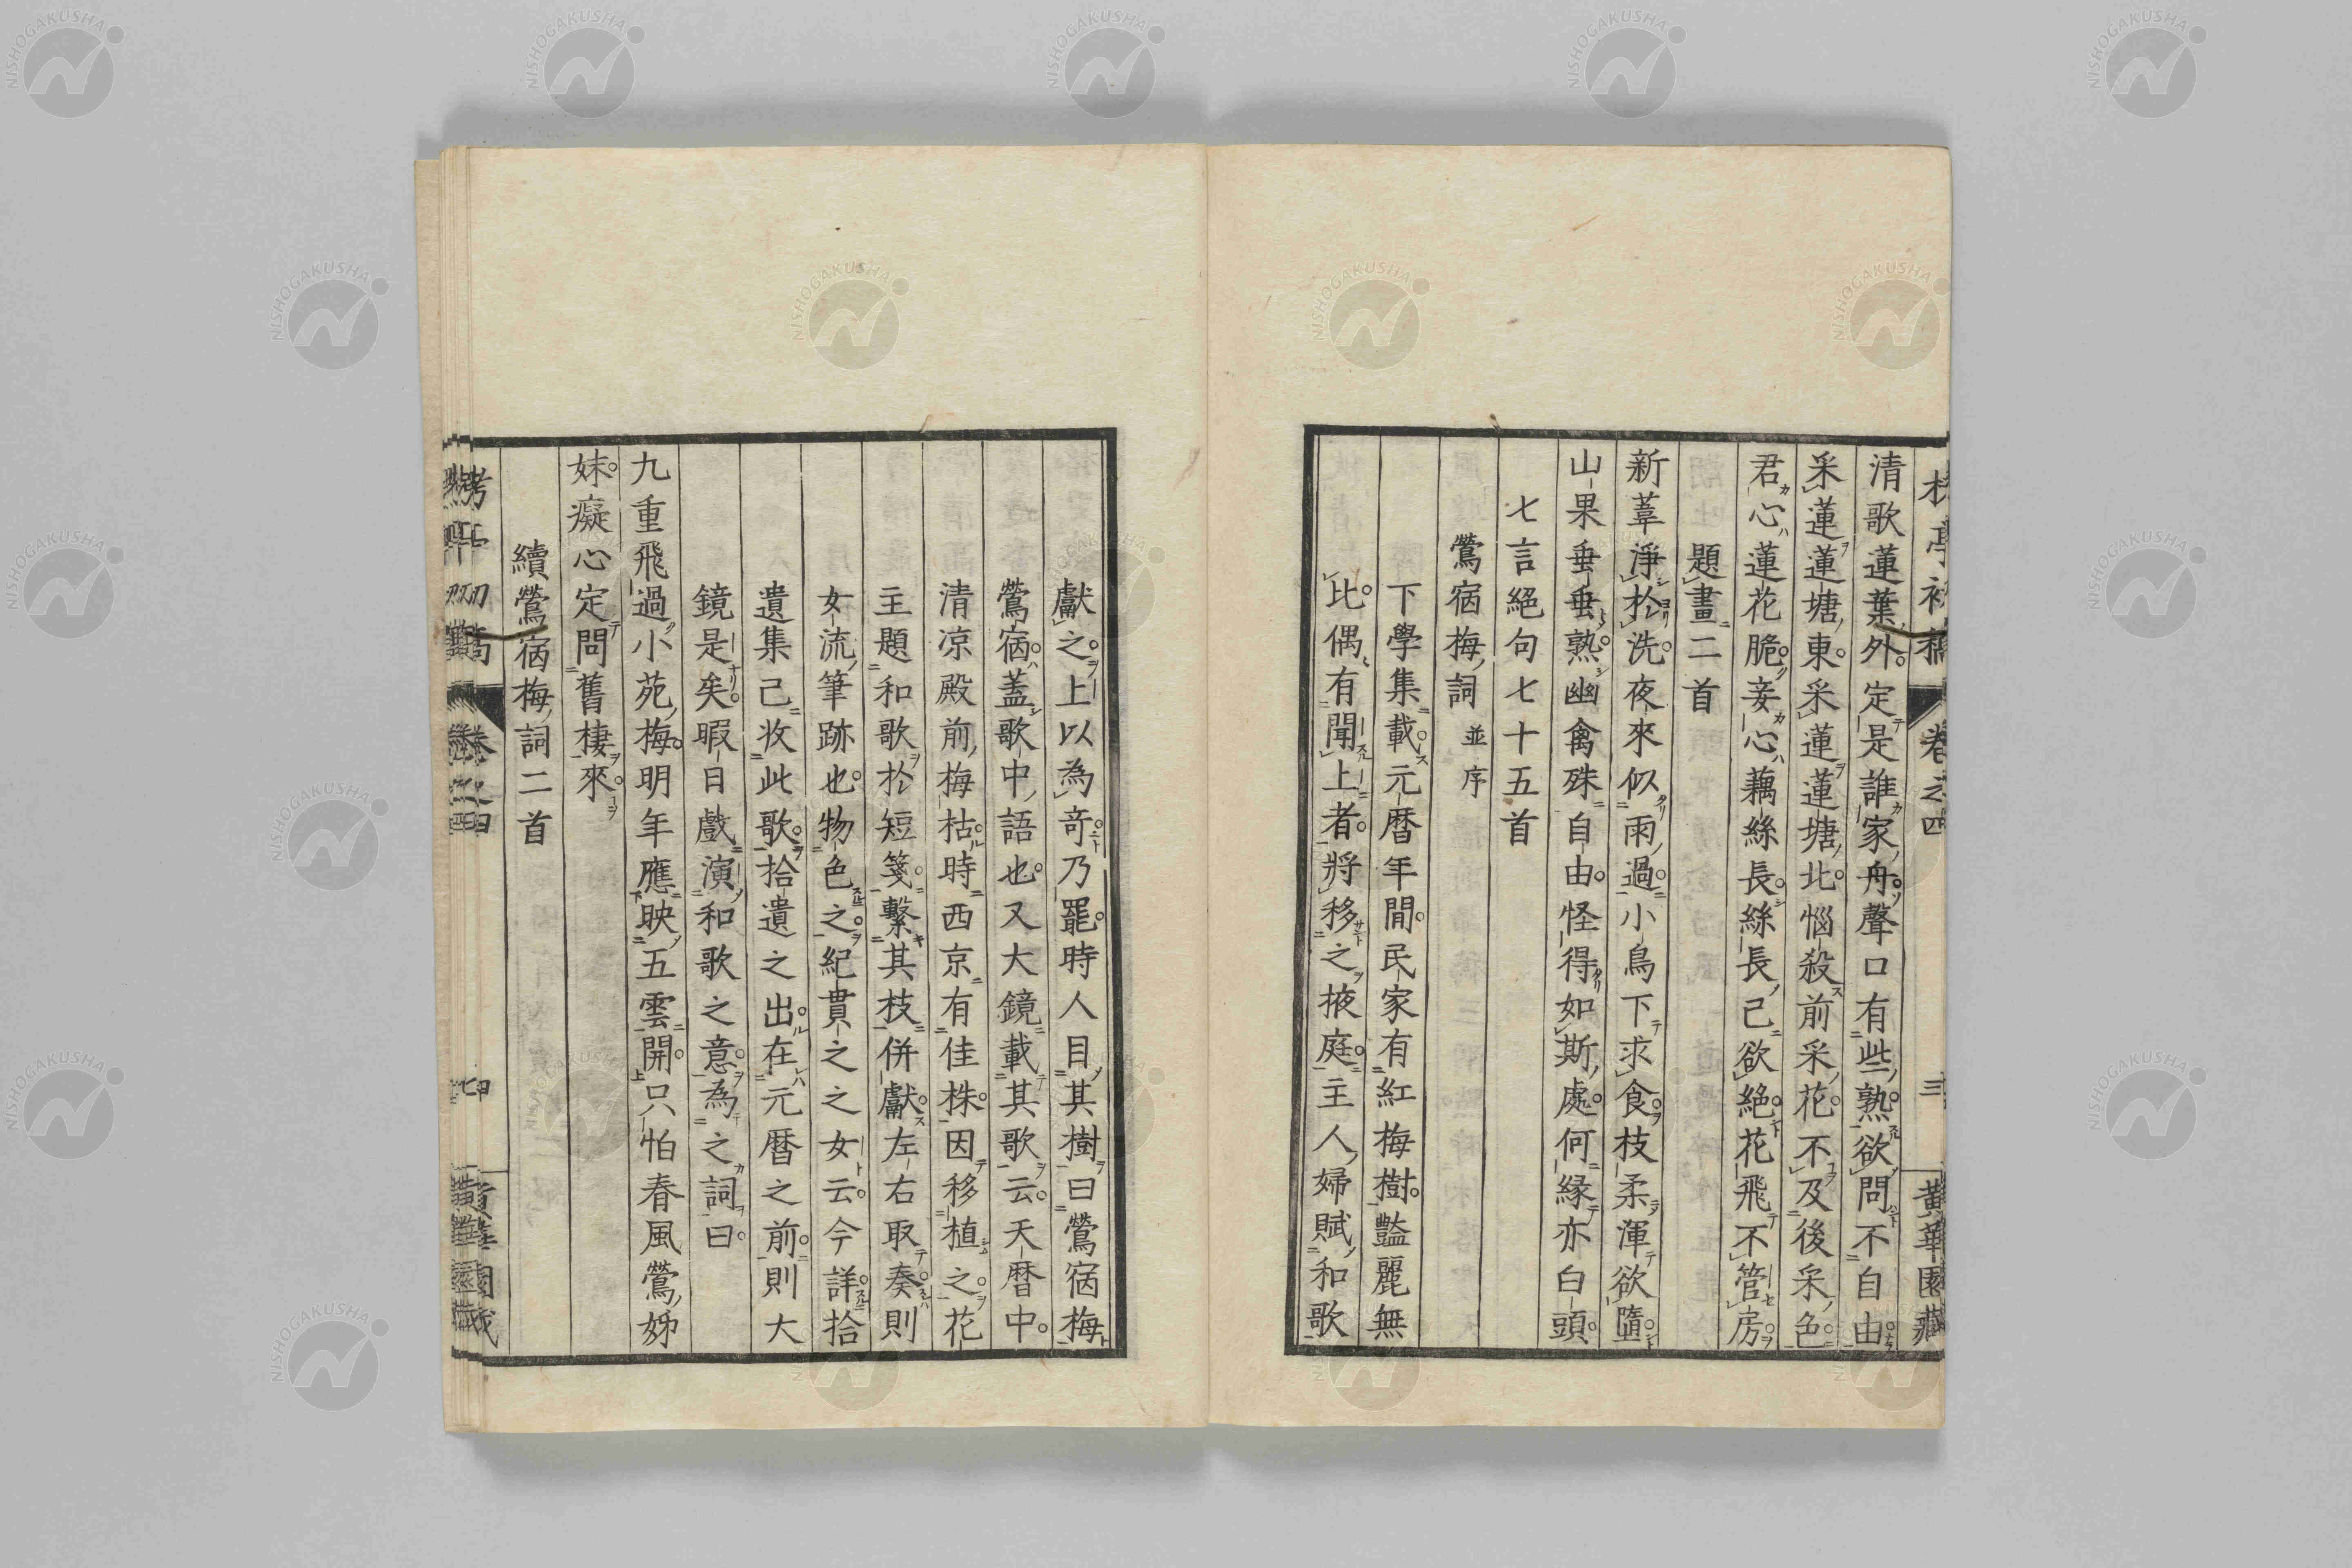 清歌蓮葉外定是誰家舟聲口有些熟欲問不自由
采蓮蓮塘東采蓮蓮塘北惱殺前采花不及後采色
君心蓮花脆妾心藕絲長絲長已欲絕花飛不管房
題畫二首
新葦淨於洗夜來似雨過小鳥下求食枝柔渾欲墮
山果垂垂熟幽禽殊自由怪得如斯處何緣亦白頭
七言絕句七十五首
鶯宿梅詞 並序
下學集載元曆年間民家有紅梅樹豔麗無
比偶有聞上者將移之掖庭主人婦賦和歌
獻之上以為奇乃罷時人目其樹曰鶯宿梅
鶯宿蓋歌中語也又大鏡載其歌云天曆中
清凉殿前梅枯時西京有佳株因移植之花
主題和歌於短箋繫其枝併獻左右取奏則
女流筆跡也物色之紀貫之之女云今詳拾
遺集已收此歌拾遺之出在元曆之前則大
鏡是矣暇日戲演和歌之意為之詞曰
九重飛過小苑梅明年應映五雲開只怕春風鶯姊
妹癡心定問舊棲來
續鶯宿梅詞二首
卷之四
三
黃華園藏
NISHOGAKUSHA